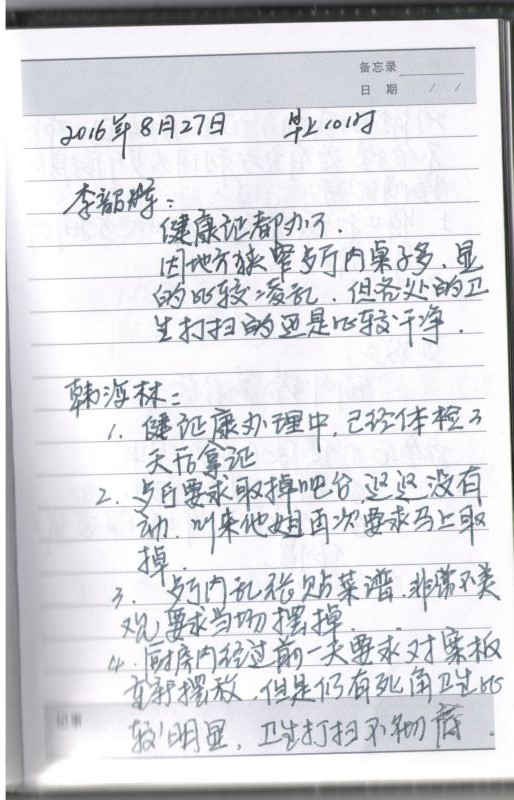 备忘录
日 期 / /
2016年8月27日 早上10时
李韶辉：
健康证都办了.
因地方狭窄与厅内桌子多.显
的比较凌乱.但各处的卫
生打扫的还是比较干净.
韩海林：
1. 健证康办理中,已经体检3
天后拿证
2. 与厅要求取掉吧台迟迟没有
动.叫来他姐再次要求马上取
掉.
3. 与厅内乱张贴菜谱.非常不美
观要求当场摆掉.
4. 厨房内经过前一天要求对案板
重新摆放.但是仍有死角卫生比
较明显,卫生打扫不彻底.